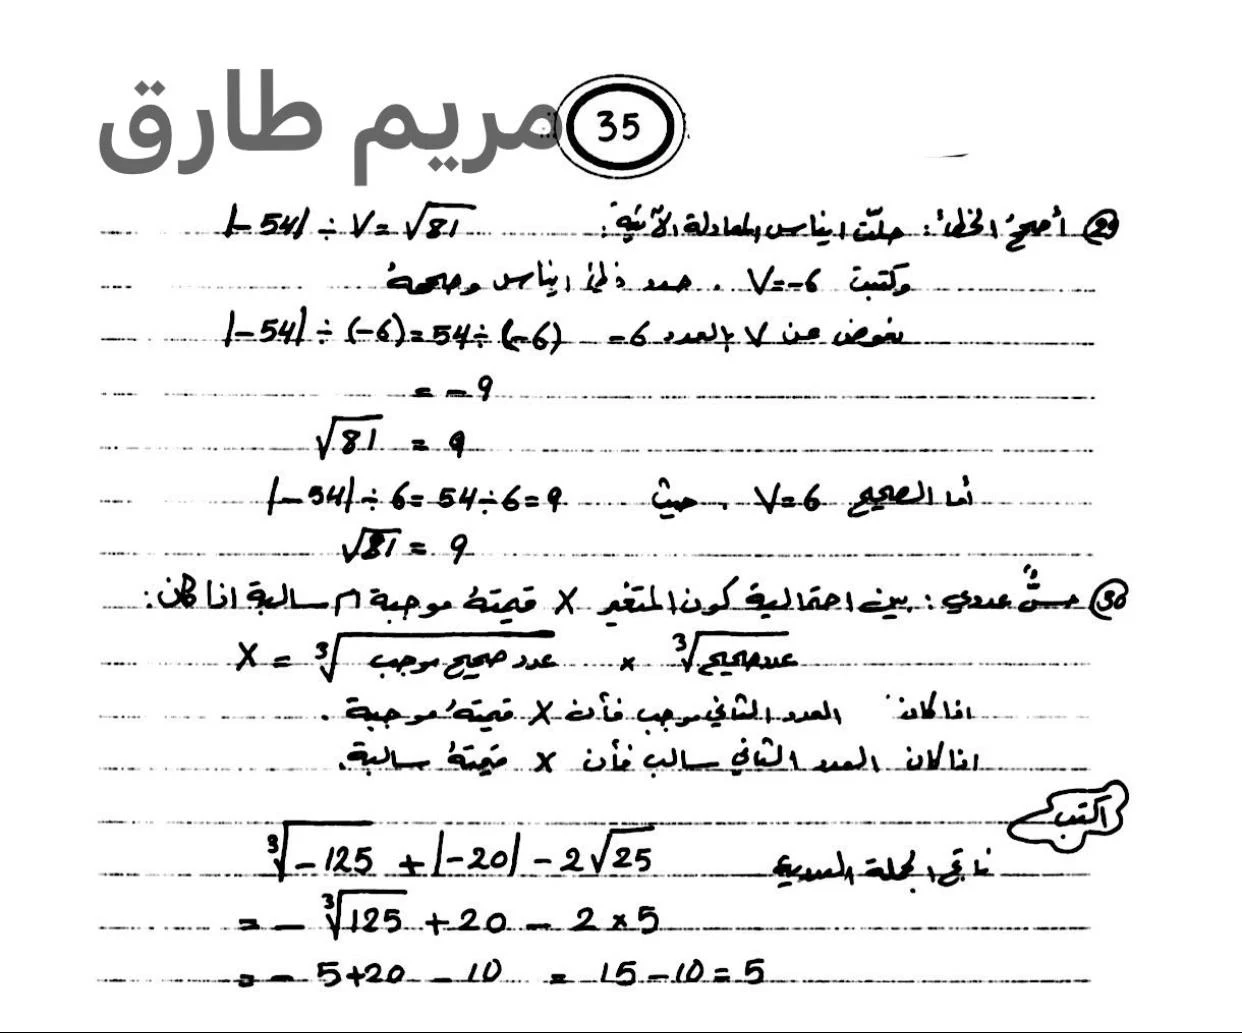 مريم طارق
35
(29) أصحح الخطأ : حلّت ايناس المعادلة الآتية : |-54| ÷ V = √81
وكتبت V=-6 . حدد خطأ ايناس وصححهُ
نعوض عن V بالعدد 6- |-54| ÷ (-6) = 54 ÷ (-6)
= -9
√81 = 9
أما الصحيح V=6 . حيث |-54| ÷ 6 = 54 ÷ 6 = 9
√81 = 9
(30) حسٌّ عددي : بين احتمالية كون المتغير X قيمتهُ موجبة ام سالبة اذا كان :
X = ∛عدد صحيح موجب × ∛عدد صحيح
اذا كان العدد الثاني موجب فأن X قيمتهُ موجبة .
اذا كان العدد الثاني سالب فأن X قيمتهُ سالبة .
اكتب
ناتج الجملة العددية ∛-125 + |-20| - 2√25
= - ∛125 + 20 - 2 × 5
= - 5 + 20 - 10 = 15 - 10 = 5